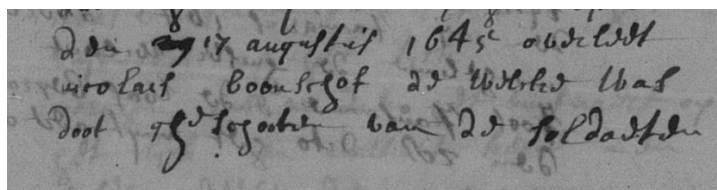 den 17 augustij 1645 overledt
nicolaes boonschot de welcke was
doot gheschooten van de soldaeten